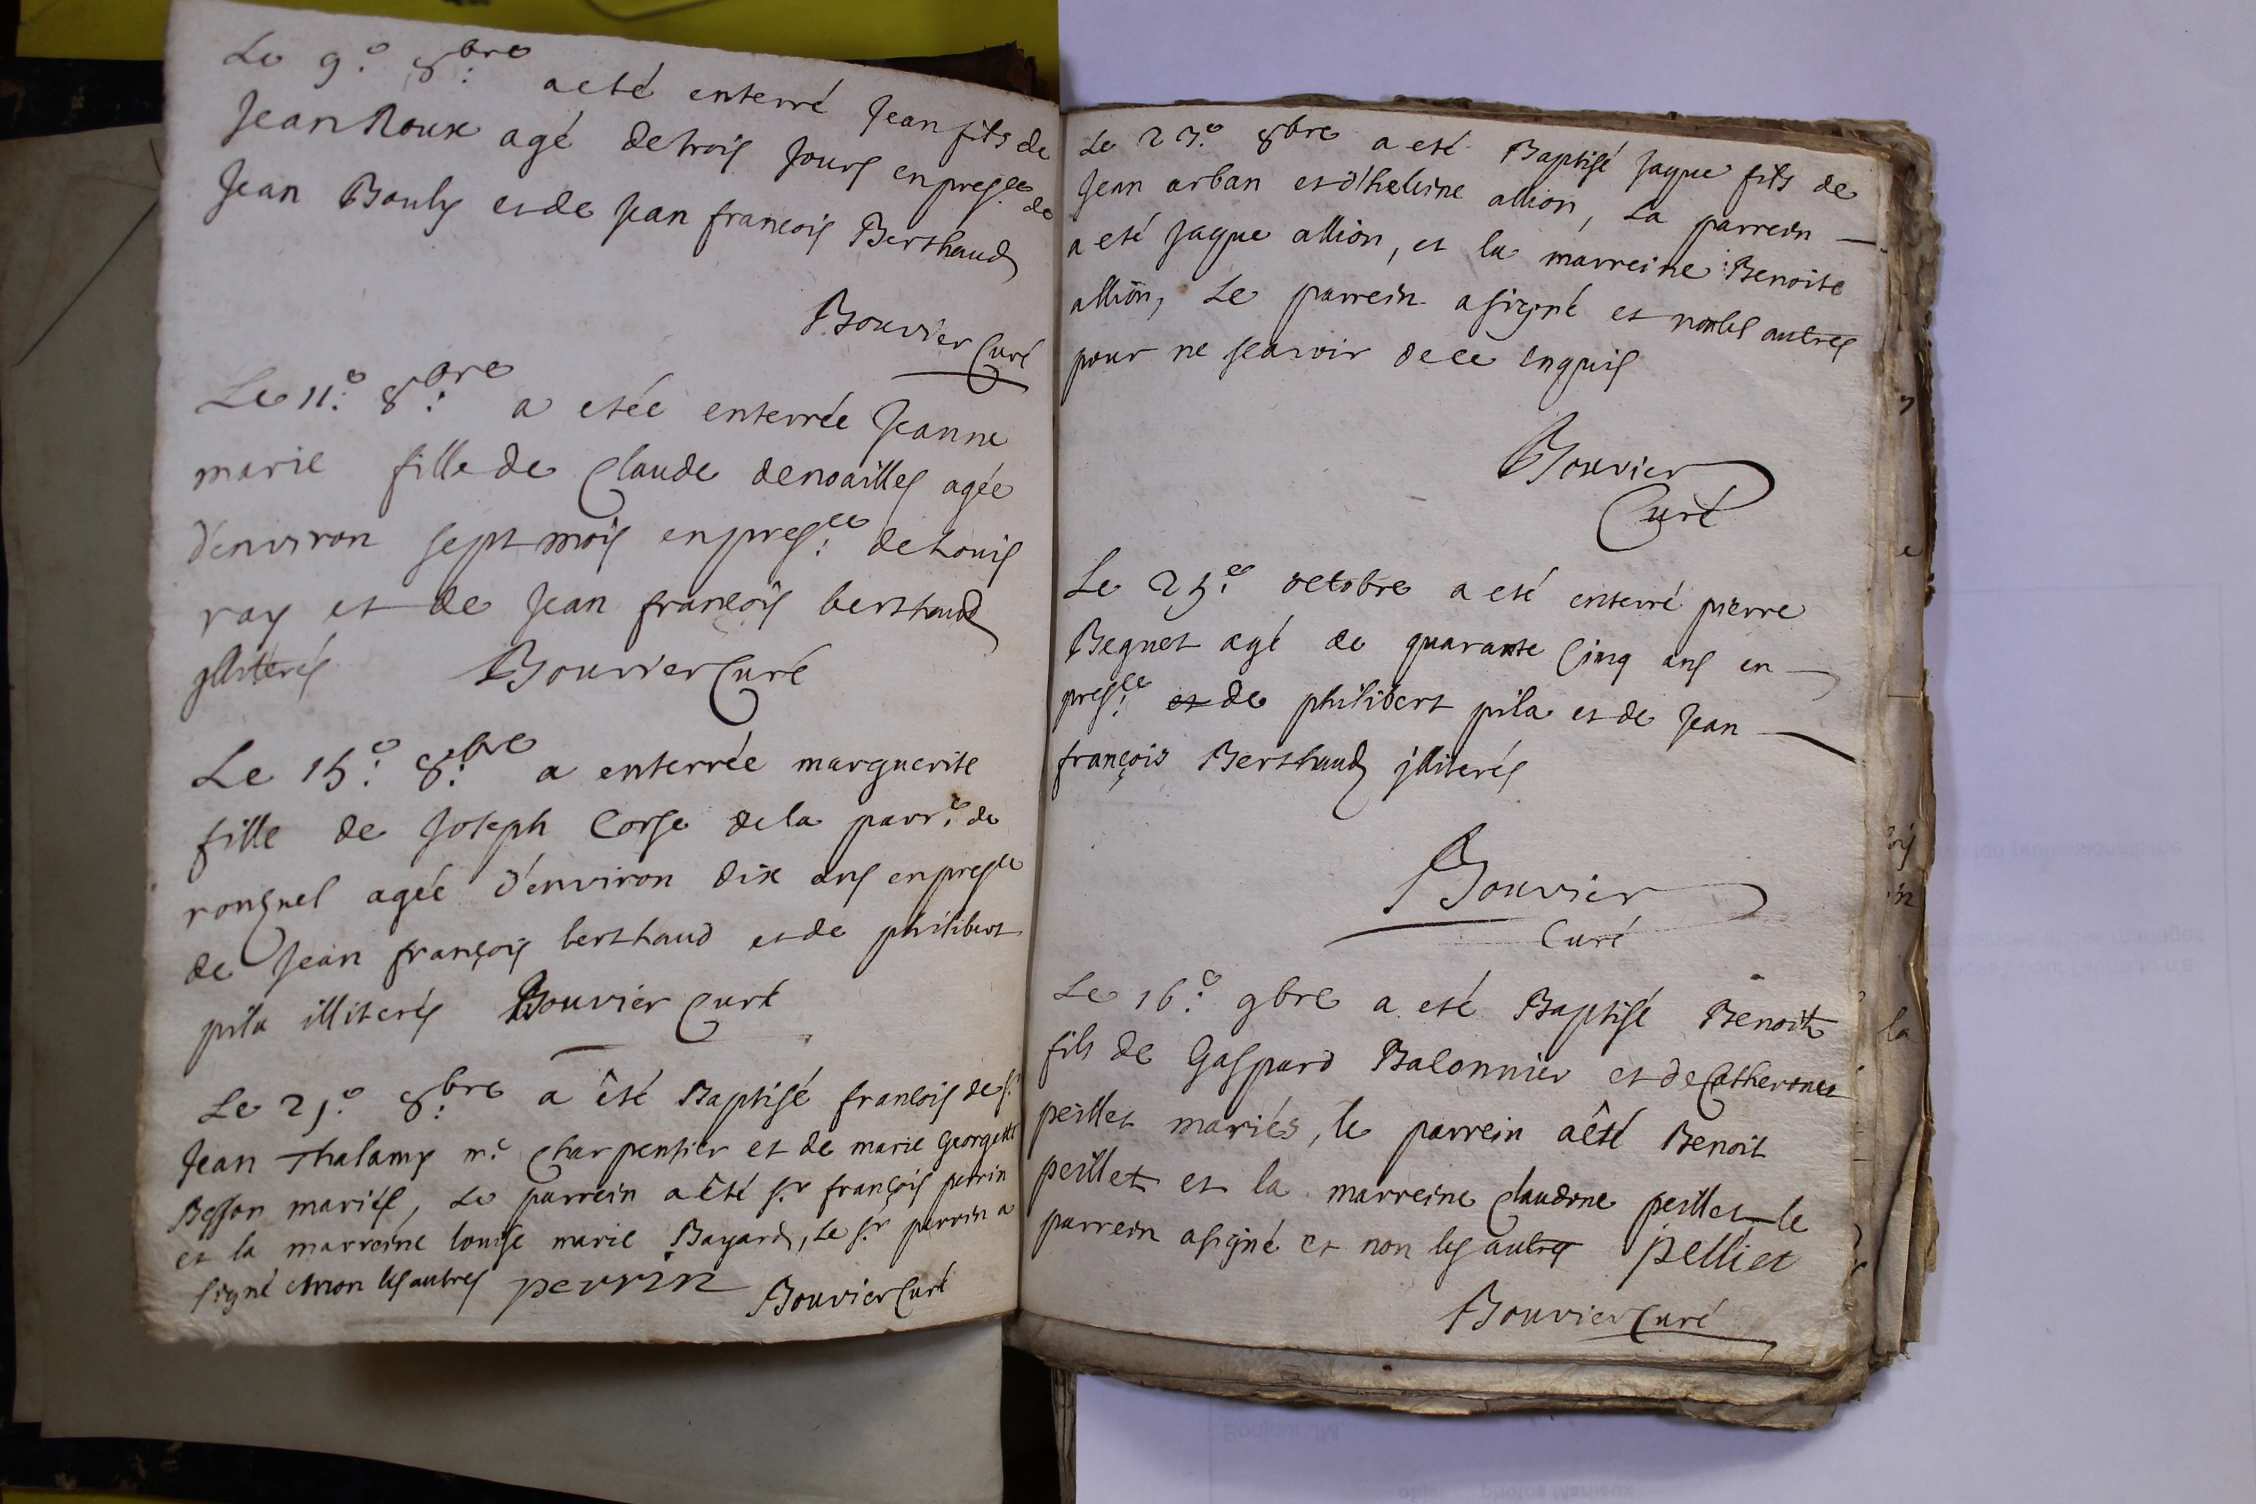 Le 9.e 8.bre a eté enterré Jean fils de
Jean Roux agé de trois Jours en pres.ce de
Jean Bouly et de Jean françois Berthaud
Bouvier Curé
Le 11.e 8.bre a etée enterrée Jeanne
marie fille de Claude denoailles agée
d'environ sept mois en pres.ce de Louis
ray et de Jean françois berthaud
jlliterés Bouvier Curé
Le 15.e 8.bre a enterrée marguerite
fille de Joseph Corse de la parr.e de
agée d'environ dix ans en presce
de Jean françois berthaud et de philibert
pila illiterés Bouvier Curé
Le 21.e 8.bre a êté Baptisé francois de s.r
Jean Thalamy m.e Charpentier et de marie Georgette
Besson mariés, Le parrein a êté s.r françois perrin
et la marreine louise marie Bayard, Le s.r perrin a
signé et non les autres perrin Bouvier Curé
Le 23.e 8bre a eté Baptisé Jaque fils de
Jean arban et d'heleine allion, La parrein
a eté Jaque allion, et la marreine Benoite
allion, Le parrein a signé et non les autres
pour ne scavoir de ce enquis
Bouvier
Curé
Le 25.e octobre a eté enterré pierre
Begnet agé de quarante Cinq ans en
pres.ce et de philibert pila et de Jean
françois Berthaud jlliterés
Bouvier
Curé
Le 16.e 9bre a eté Baptisé Benoit
fils de Gaspard Balonnier et de Catherine
peillet mariés, le parrein a êté Benoit
peillet et la marreine Claudine peillet, le
parrein a signé et non les autres pelliet
Bouvier Curé